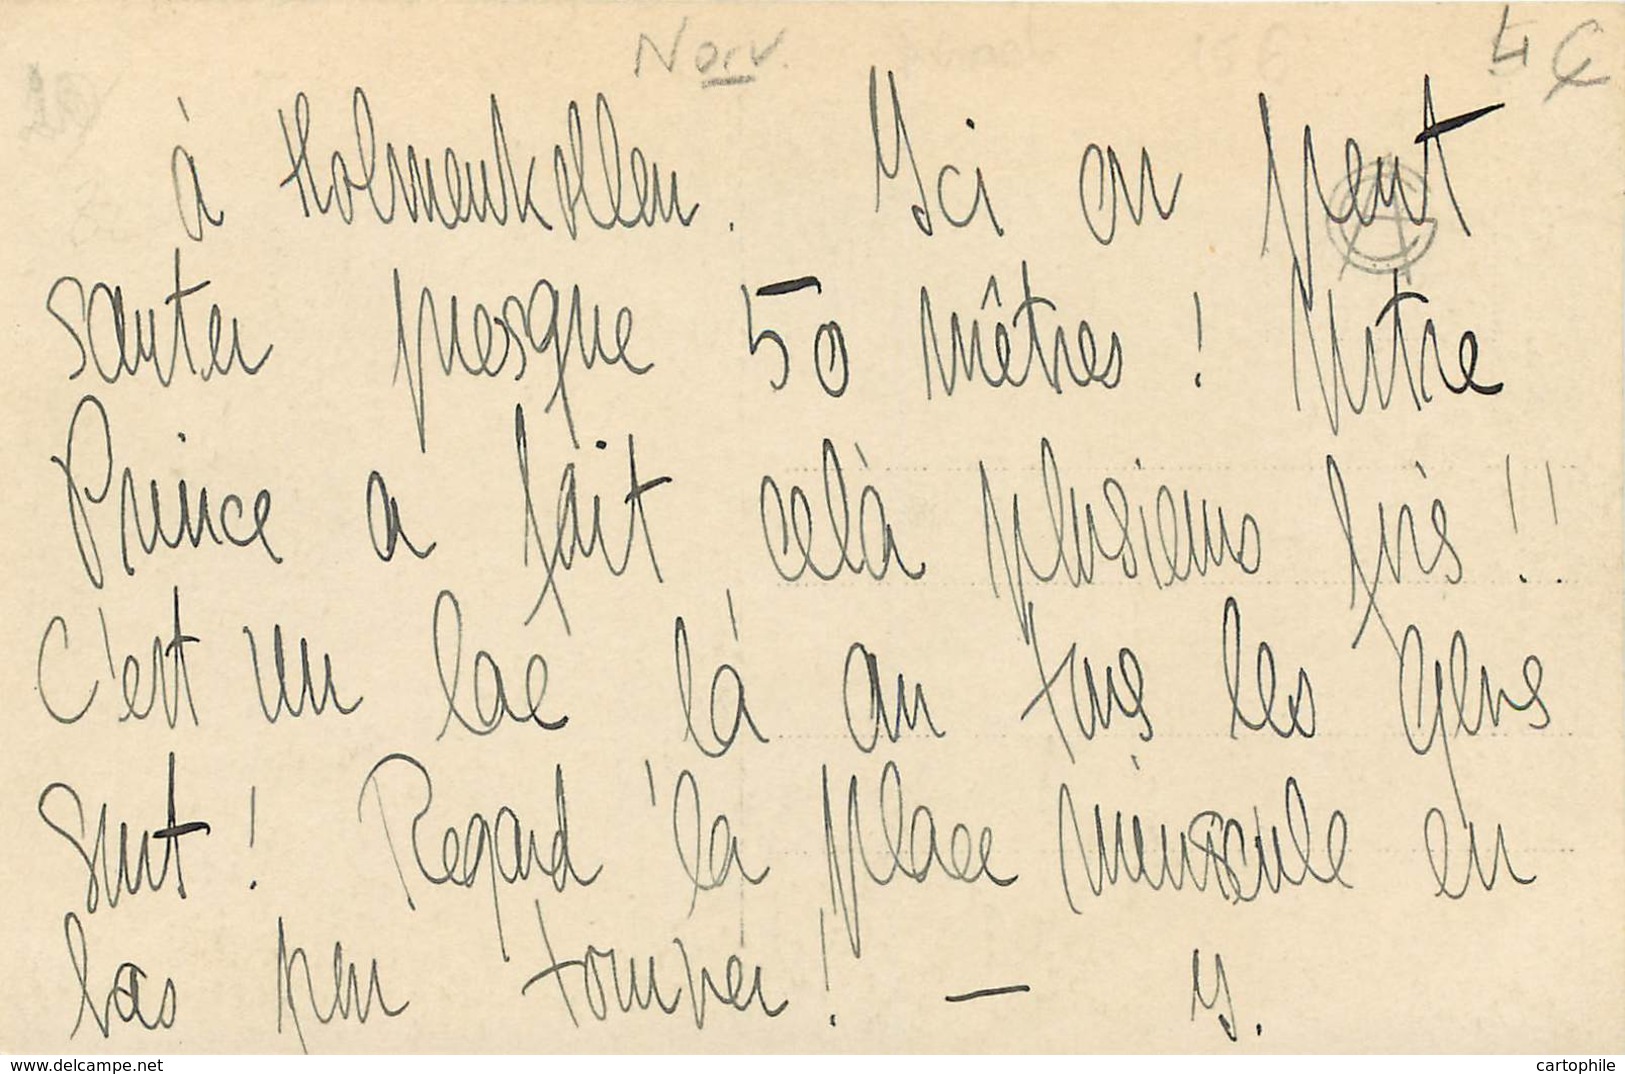 Norv.
à Holmenkollen. Ici on peut
sauter presque 50 mètres ! Notre
Prince a fait celà plusieurs fois !!
C'est un lac là où tous les gens
sont ! Regard la place minuscule en
bas pour tomber ! — Y.
www.delcampe.net
cartophile